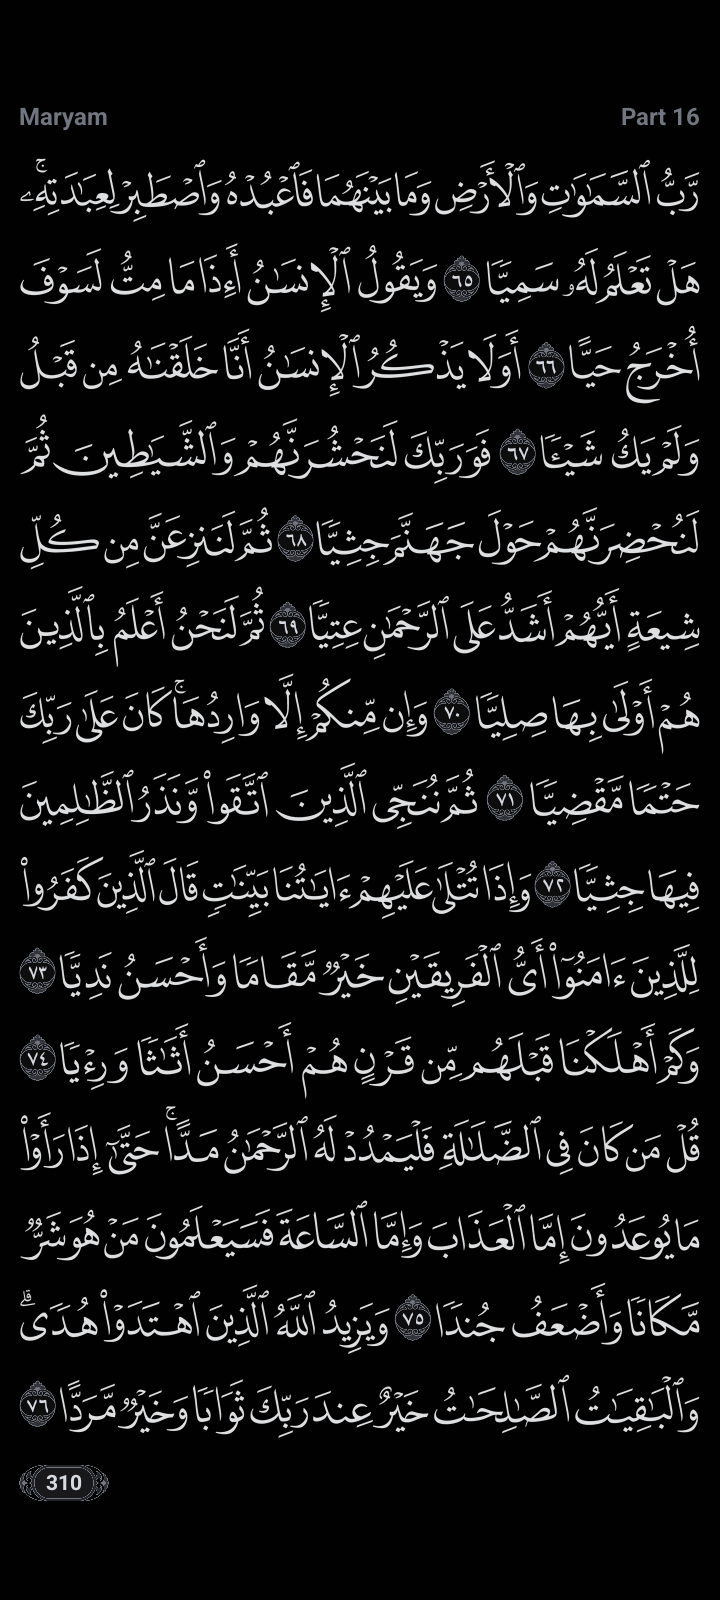 Maryam Part 16
رَّبُّ ٱلسَّمَٰوَٰتِ وَٱلۡأَرۡضِ وَمَا بَيۡنَهُمَا فَٱعۡبُدۡهُ وَٱصۡطَبِرۡ لِعِبَٰدَتِهِۦۚ
هَلۡ تَعۡلَمُ لَهُۥ سَمِيّٗا ٦٥ وَيَقُولُ ٱلۡإِنسَٰنُ أَءِذَا مَا مِتُّ لَسَوۡفَ
أُخۡرَجُ حَيًّا ٦٦ أَوَلَا يَذۡكُرُ ٱلۡإِنسَٰنُ أَنَّا خَلَقۡنَٰهُ مِن قَبۡلُ
وَلَمۡ يَكُ شَيۡـٔٗا ٦٧ فَوَرَبِّكَ لَنَحۡشُرَنَّهُمۡ وَٱلشَّيَٰطِينَ ثُمَّ
لَنُحۡضِرَنَّهُمۡ حَوۡلَ جَهَنَّمَ جِثِيّٗا ٦٨ ثُمَّ لَنَنزِعَنَّ مِن كُلِّ
شِيعَةٍ أَيُّهُمۡ أَشَدُّ عَلَى ٱلرَّحۡمَٰنِ عِتِيّٗا ٦٩ ثُمَّ لَنَحۡنُ أَعۡلَمُ بِٱلَّذِينَ
هُمۡ أَوۡلَىٰ بِهَا صِلِيّٗا ٧٠ وَإِن مِّنكُمۡ إِلَّا وَارِدُهَاۚ كَانَ عَلَىٰ رَبِّكَ
حَتۡمٗا مَّقۡضِيّٗا ٧١ ثُمَّ نُنَجِّي ٱلَّذِينَ ٱتَّقَواْ وَّنَذَرُ ٱلظَّٰلِمِينَ
فِيهَا جِثِيّٗا ٧٢ وَإِذَا تُتۡلَىٰ عَلَيۡهِمۡ ءَايَٰتُنَا بَيِّنَٰتٖ قَالَ ٱلَّذِينَ كَفَرُواْ
لِلَّذِينَ ءَامَنُوٓاْ أَيُّ ٱلۡفَرِيقَيۡنِ خَيۡرٞ مَّقَامٗا وَأَحۡسَنُ نَدِيّٗا ٧٣
وَكَمۡ أَهۡلَكۡنَا قَبۡلَهُم مِّن قَرۡنٍ هُمۡ أَحۡسَنُ أَثَٰثٗا وَرِءۡيٗا ٧٤
قُلۡ مَن كَانَ فِي ٱلضَّلَٰلَةِ فَلۡيَمۡدُدۡ لَهُ ٱلرَّحۡمَٰنُ مَدًّاۚ حَتَّىٰٓ إِذَا رَأَوۡاْ
مَا يُوعَدُونَ إِمَّا ٱلۡعَذَابَ وَإِمَّا ٱلسَّاعَةَ فَسَيَعۡلَمُونَ مَنۡ هُوَ شَرّٞ
مَّكَانٗا وَأَضۡعَفُ جُندٗا ٧٥ وَيَزِيدُ ٱللَّهُ ٱلَّذِينَ ٱهۡتَدَوۡاْ هُدٗىۗ
وَٱلۡبَٰقِيَٰتُ ٱلصَّٰلِحَٰتُ خَيۡرٌ عِندَ رَبِّكَ ثَوَابٗا وَخَيۡرٞ مَّرَدًّا ٧٦
310